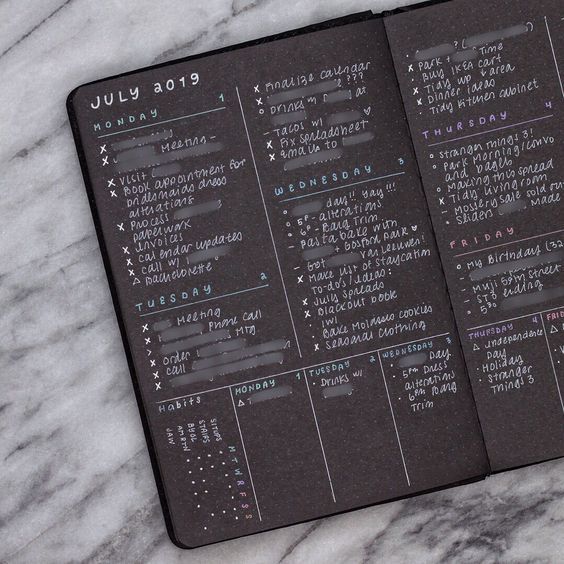 JULY 2019
MONDAY 1
x
x Meeting -
x Visit
x Book appointment for
bridesmaids dress
alterations
x Process
paperwork
x invoices
x calendar updates
x call w/
△ Bachelorette
TUESDAY 2
x Meeting
x Phone call
> MTG
x order
x call
x
x Finalize calendar
x ???
o Drinks w/ at
- Tacos w/ ♡
x Fix spreadsheet
x Emails to
WEDNESDAY 3
o day!! yay!!!
o 5P - alterations
o 6P - Bang Trim
- Pasta bake with
+ Gosford Park ♥
- Get Van Leeuwen!
x Make list of staycation
to-dos/ideas
x July spreads
x Blackout book
IWL
· Bake Molasses cookies
x Seasonal clothing
Habits
SITUPS
STAIRS
BYOL
AM RTN
JAW
M T W R F S S
MONDAY 1
△
TUESDAY 2
· Drinks w/
WEDNESDAY 3
· Day
· 5PM Dress
alterations
· 6PM Bang
Trim
? (
x Park + Time
x Buy IKEA cart
x Tidy up ↓ area
x Dinner ideas
· Tidy kitchen cabinet
THURSDAY 4
o Stranger Things 3!
o Park morning/convo
and bagels
o Making this spread
x Tidy living room
- sale sold out
- Made
FRIDAY
o My Birthday (32
- Muji 59th Street
- ST3 ending
o 530
THURSDAY 4
△ Independence
Day
· Holiday
· Stranger
Things 3
FRID